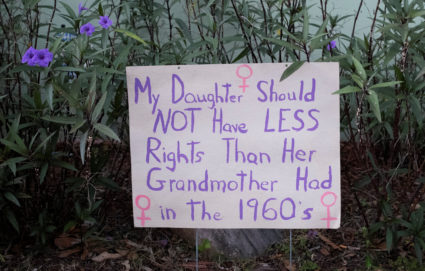 My Daughter Should
NOT Have LESS
Rights Than Her
Grandmother Had
in the 1960's